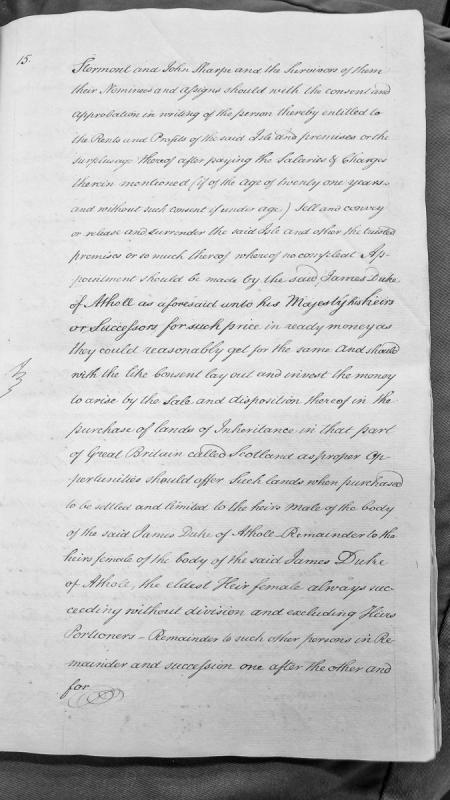 15.
Stormont and John Sharpe and the Survivors of them
their Nominees and assigns should with the consent and
approbation in writing of the person thereby entitled to
the Rents and Profits of the said Isle and premises or the
surplusage thereof after paying the Salaries & Charges
therein mentioned (if of the age of twenty one years
and without such consent if under age) Sell and convey
or release and surrender the said Isle and other the trusted
premises or so much thereof whereof no compleat Ap-
pointment should be made by the said James Duke
of Atholl as aforesaid unto his Majesty his heirs
or Successors for such price in ready money as
they could reasonably get for the same and should
with the like Consent lay out and invest the money
to arise by the Sale and disposition thereof in the
purchase of lands of Inheritance in that part
of Great Britain called Scotland as proper Op-
portunities should offer Such lands when purchased
to be settled and limited to the heirs male of the body
of the said James Duke of Atholl - Remainder to the
heirs female of the body of the said James Duke
of Atholl, the eldest Heir female always suc-
ceeding without division and excluding Heirs
Portioners - Remainder to such other persons in Re-
mainder and succession one after the other and
for